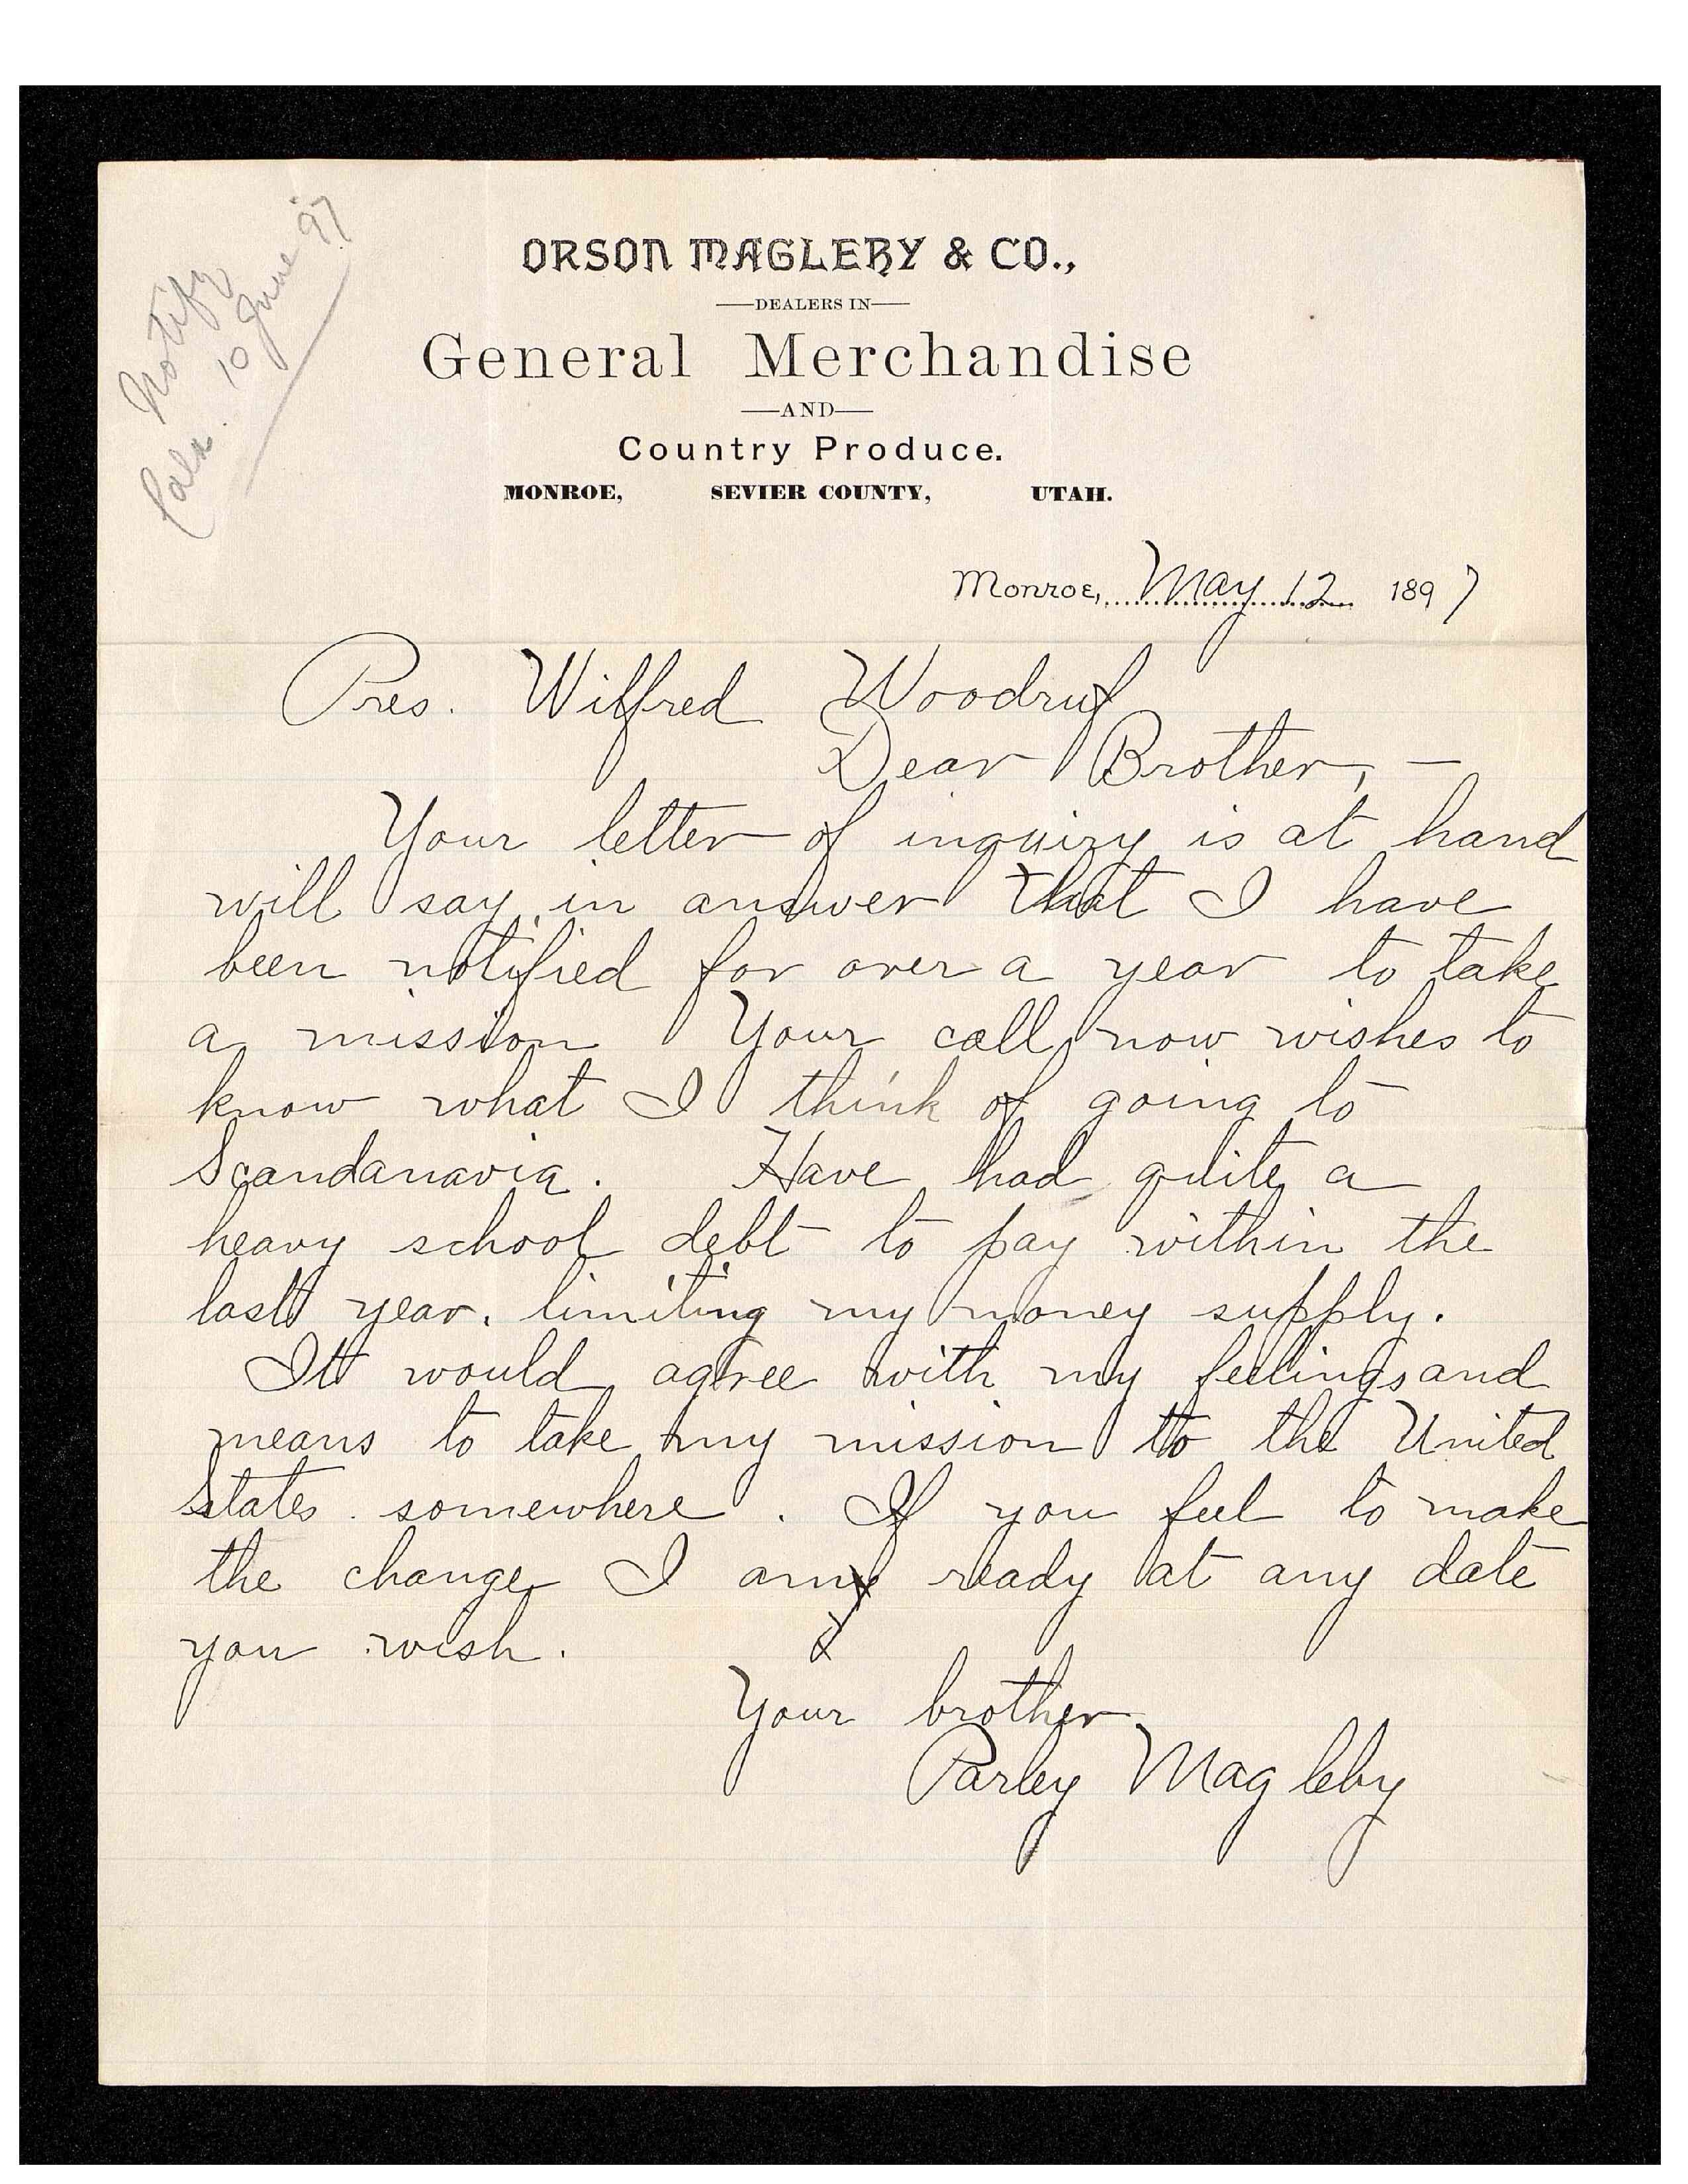 Notify
Cala. 10 June '97
ORSON MAGLEBY & CO.,
DEALERS IN
General Merchandise
AND
Country Produce.
MONROE, SEVIER COUNTY, UTAH.
Monroe, May 12 1897
Pres. Wilfred Woodruf
Dear Brother, —
Your letter of inquiry is at hand
will say in answer that I have
been notified for over a year to take
a mission Your call now wishes to
know what I think of going to
Scandanavia. Have had quite a
heavy school debt to pay within the
last year, limiting my money supply.
It would agree with my feelings and
means to take my mission to the United
States somewhere. If you feel to make
the change I am ready at any date
you wish.
Your brother
Parley Magleby